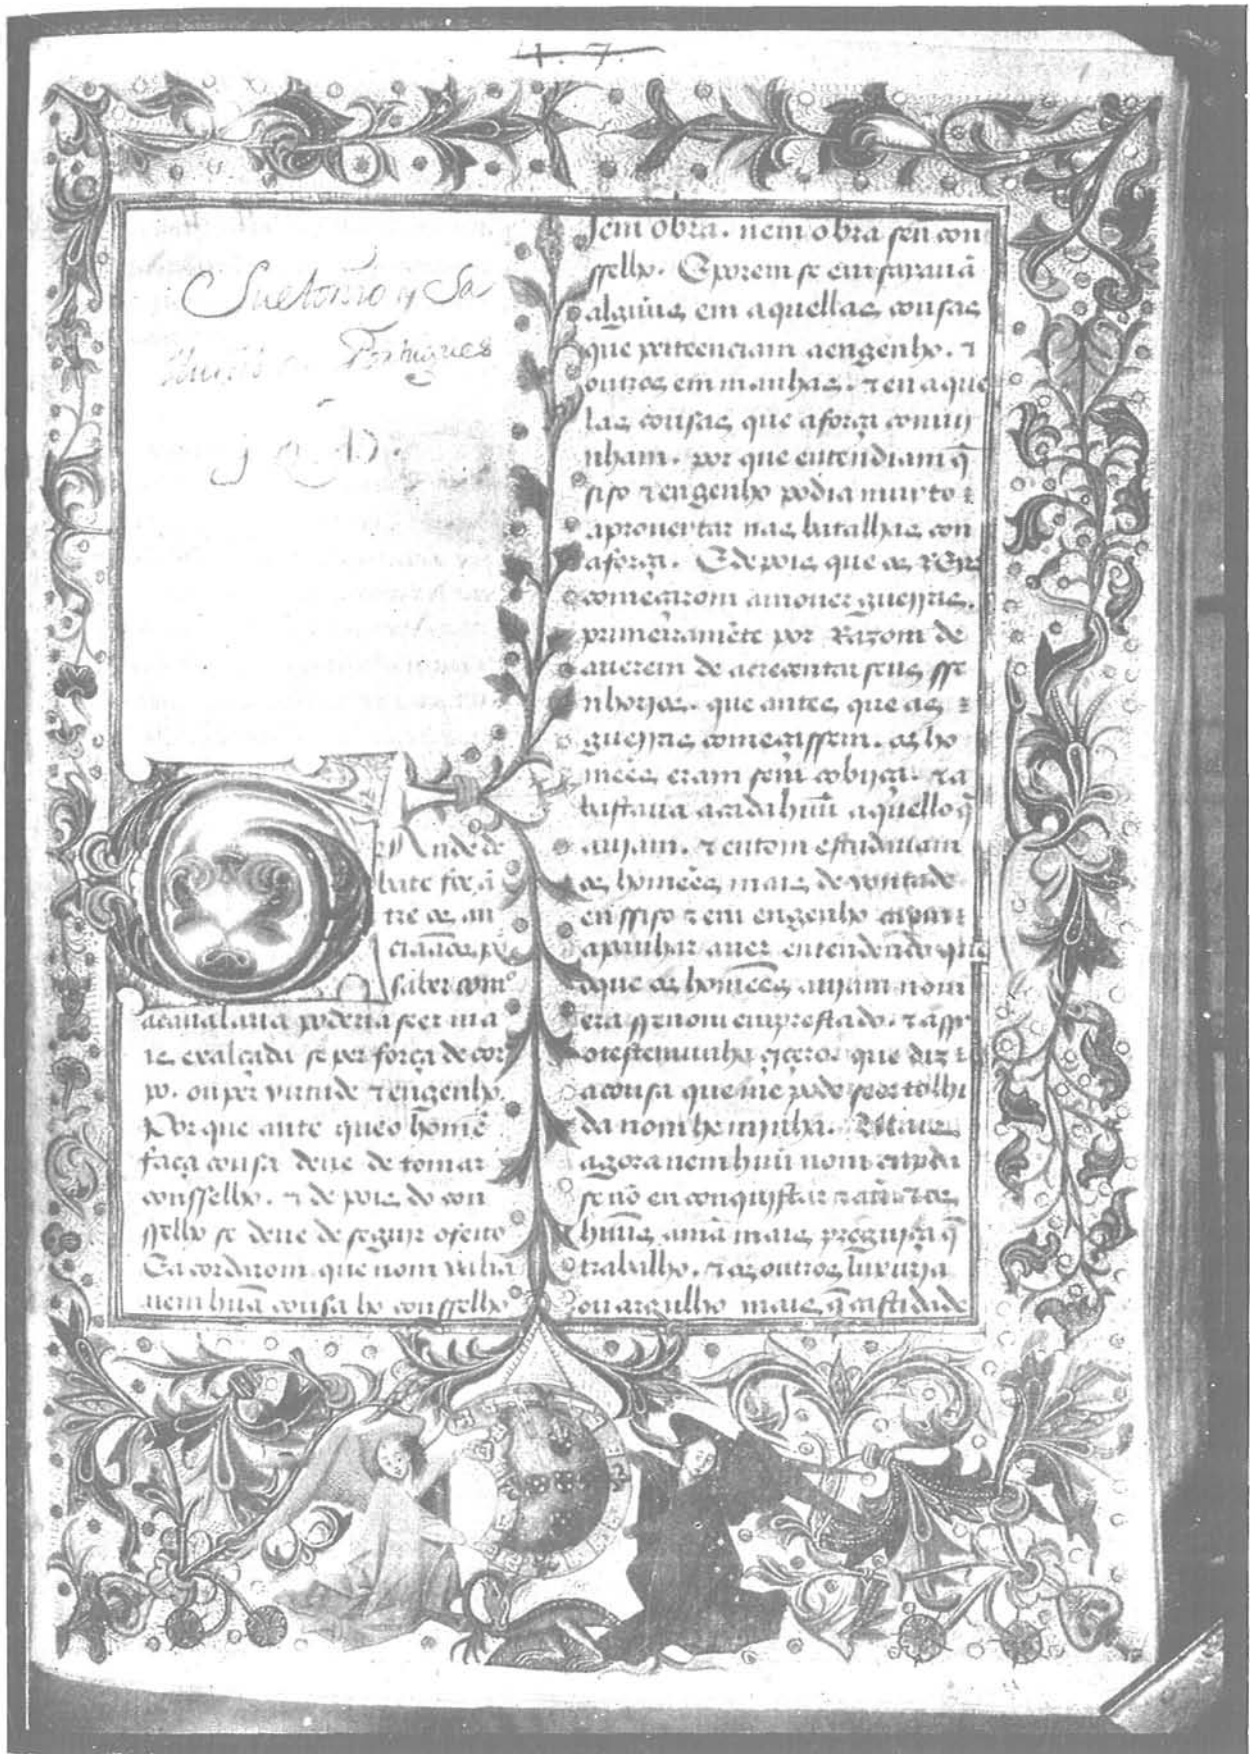 1. 7.
Suetonio y Sa
en Portugues
Rande de
bate foe ã
tre os an
ciãaos p̃
saber com⁰
acaualaria poderia seer ma
is exalçada se per força de cor
po. ou per uirtude ⁊ engenho.
Por que ante que o homẽ
faça cousa deue de tomar
consselho. ⁊ de pois do con
sselho se deue de seguir ofeito
E acordarom que nom ualia
nem hũa cousa ho consselho
sem obra. nem obra sen con
sselho. E porem se enssauauã
alguũs em aquellas cousas
que perteenciam aengenho. ⁊
outros em manhas. ⁊ en aque
las cousas que aforça conuij
nham. por que entendiam q̃
siso ⁊ engenho podia muyto
aproueytar nas batalhas con
aforça. E depois que os Reys
começarom amouer guerras.
primeiramẽte por Razom de
auerem de acrecentar seus sse
nhorios. que antes que as
guerras começassem. os ho
meẽs eram sem cobijça. ⁊ a
bastaua acada huũ aquello q̃
auiam. ⁊ entom estudauam
os homeẽs mais de uontade
en ssiso ⁊ em engenho
apanhar auer entendendo que
oque os homeẽs auiam nom
era sseu nom emprestado. ⁊ assy
o testemunha çiçero. que diz
acousa que me pode seer tolhi
da nom he minha. Mais
agora nem huũ nom cuyda
se nõ en conquistar
huũs amã mais preguiça q̃
trabalho. ⁊ os outros luxuria
ou argulho mais q̃ castidade